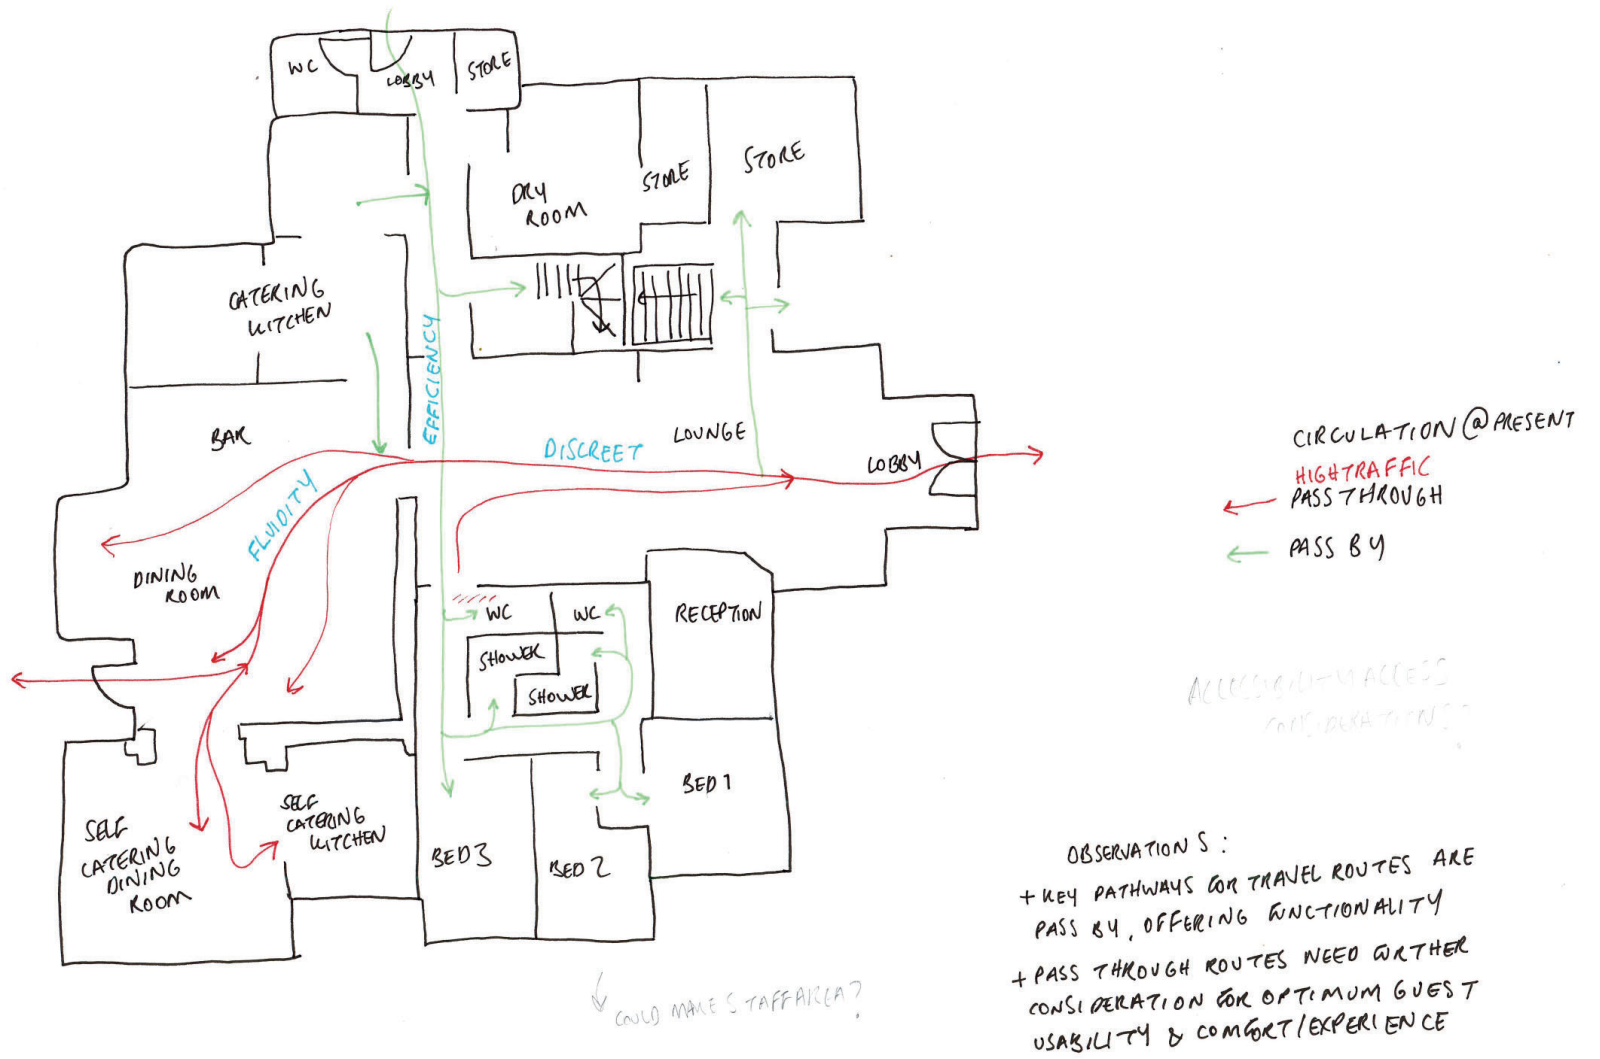 WC
LOBBY
STORE
DRY
ROOM
STORE
STORE
CATERING
KITCHEN
EFFICIENCY
BAR
DISCREET
LOUNGE
LOBBY
FLUIDITY
DINING
ROOM
WC
WC
RECEPTION
SHOWER
SHOWER
BED 1
SELF
CATERING
DINING
ROOM
SELF
CATERING
KITCHEN
BED 3
BED 2
CIRCULATION @ PRESENT
HIGH TRAFFIC
PASS THROUGH
PASS BY
ACCESSIBILITY ACCESS
CONSIDERATIONS
OBSERVATIONS:
+ KEY PATHWAYS FOR TRAVEL ROUTES ARE
PASS BY, OFFERING FUNCTIONALITY
+ PASS THROUGH ROUTES NEED FURTHER
CONSIDERATION FOR OPTIMUM GUEST
USABILITY & COMFORT/EXPERIENCE
COULD MAKE STAFF AREA?